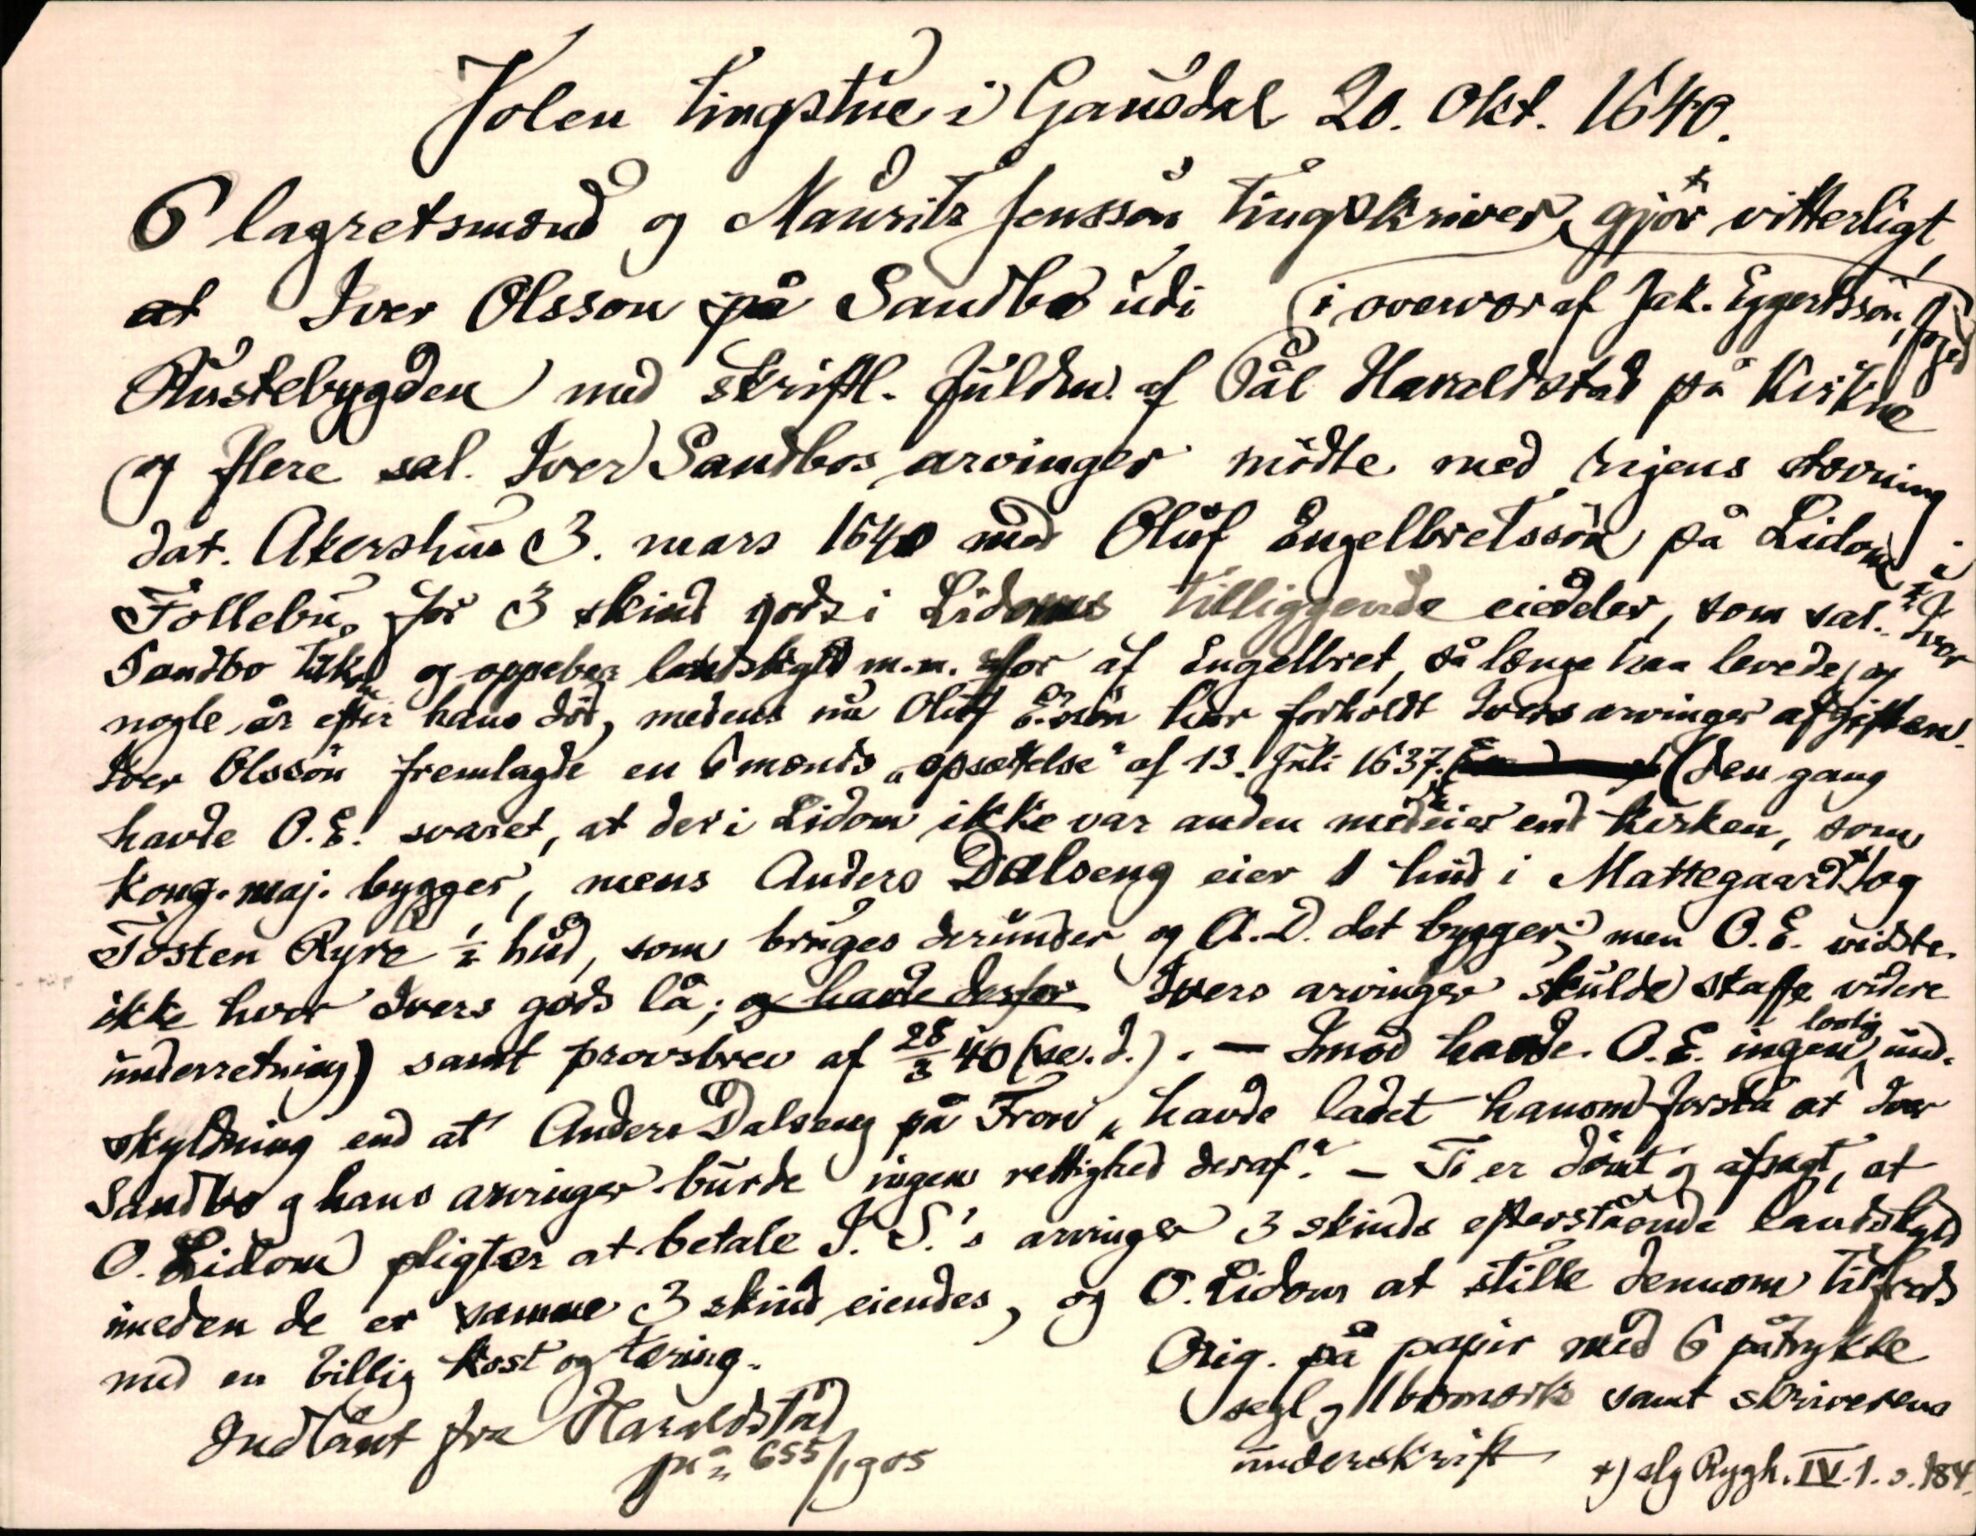 Jolen tingstue i Gausdal 20. Okt. 1640.
6 lagretsmænd og Maurits Jensson tingskriver, gjør vitterligt,
at Iver Olsson på Sandbo udi (i overvær af Jak. Eggertssøn, foged)
Rustebygden med skriftl. fuldm. af Pål Haraldstad på Kirkne
og flere sal. Iver Sandbos arvinger mødte med rigens stevning
dat. Akershus 3. mars 1640 mod Oluf Engelbretssøn på Lidom i
Follebu, for 3 skind gods i Lidoms tilliggende eiedeler, som sal. Iver
Sandbo tilkom og oppebar landskyld m.m. for af Engelbret, så længe han levede, og
nogle år efter hans død, medens nu Oluf E.søn har forholdt Ivers arvinger afgiften.
Iver Olssøn fremlagde en 6 mænds „opsættelse" af 13. Juli 1637. (den gang
havde O.E. svaret, at der i Lidom ikke var anden medeier end kirken, som
kong. maj. bygger, mens Anders Dalseng eier 1 hud i Mattegaard +) og
Tosten Ryre ½ hud, som bruges derunder og A.D. det bygger; men O.E. vidste
ikke hvor Ivers gods lå; og havde derfor Ivers arvinger skulde skaffe videre
underretning) samt prøvsbrev af 28/3 40 (se. d.). — Imod havde O.E. ingen lovlig und-
skyldning end at Anders Dalseng på Fron „havde ladet hanom forstå at Iver
Sandbo og hans arvinger burde ingen rettighed deraf." — Ti er dømt og afsagt, at
O. Lidom pligter at betale I. S.'s arvinger 3 skinds efterstående landskyld
imeden de er samme 3 skind eiendes, og O. Lidom at stille dennom tilfreds
med en billig kost og tæring.
Orig. på papir med 6 påtrykte
segl og 1 bomærke samt skriverens
underskrift
Indlånt fra Haraldstad
jnr. 655/1905
+) slg Rygh. IV. 1. s. 184.